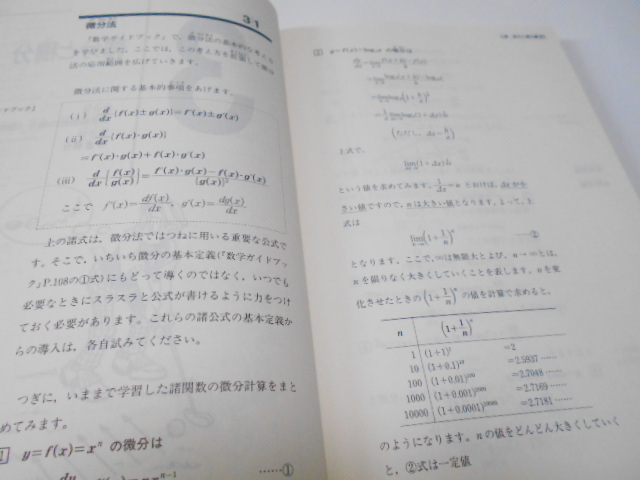 微分法
3・1
『数学ガイドブック』で，微分法の基本的な考え方
を学びました．ここでは，この考え方を拡張して微分
法の応用範囲を広げていきます．
微分法に関する基本的事項をあげます．
(i) d/dx {f(x)±g(x)}=f'(x)±g'(x)
(ii) d/dx {f(x)・g(x)}
=f'(x)・g(x)+f(x)・g'(x)
(iii) d/dx {f(x)/g(x)}=f'(x)・g(x)−f(x)・g'(x)/{g(x)}²
ここで f'(x)=df(x)/dx, g'(x)=dg(x)/dx
上の諸式は，微分法ではつねに用いる重要な公式で
す．そこで，いちいち微分の基本定義(『数学ガイドブッ
ク』P.108の①式)にもどって導くのではなく，いつでも
必要なときにスラスラと公式が書けるように力をつけ
ておく必要があります．これらの諸公式の基本定義か
らの導入は，各自試みてください．
つぎに，いままで学習した諸関数の微分計算をまと
めてみます．
1 y=f(x)=xⁿ の微分は
……①
上式で，
という値を求めてみます．1/Δx=n とおけば，Δxが小
さい値ですので，nは大きい値となります．よって，上
式は
lim(1+1/n)ⁿ ……②
となります．ここで，∞は無限大とよび，n→∞とは，
nを限りなく大きくしていくことを表します．nを変
化させたときの (1+1/n)ⁿ の値を計算で求めると，
n (1+1/n)ⁿ
1 (1+1)¹ =2
10 (1+0.1)¹⁰ =2.5937……
100 (1+0.01)¹⁰⁰ =2.7048……
1000 (1+0.001)¹⁰⁰⁰ =2.7169……
10000 (1+0.0001)¹⁰⁰⁰⁰ =2.7181……
のようになります．nの値をどんどん大きくしていく
と，②式は一定値